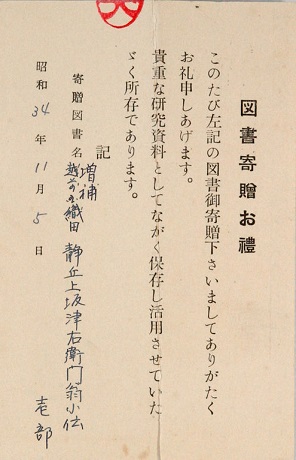 図書寄贈お禮
このたび左記の図書御寄贈下さいましてありがたく
お礼申しあげます。
貴重な研究資料としてながく保存し活用させていた
ゞく所存であります。
記
寄贈図書名 増補 越前の織田 静丘上坂津右衛門翁小伝 壱部
昭和34年11月5日